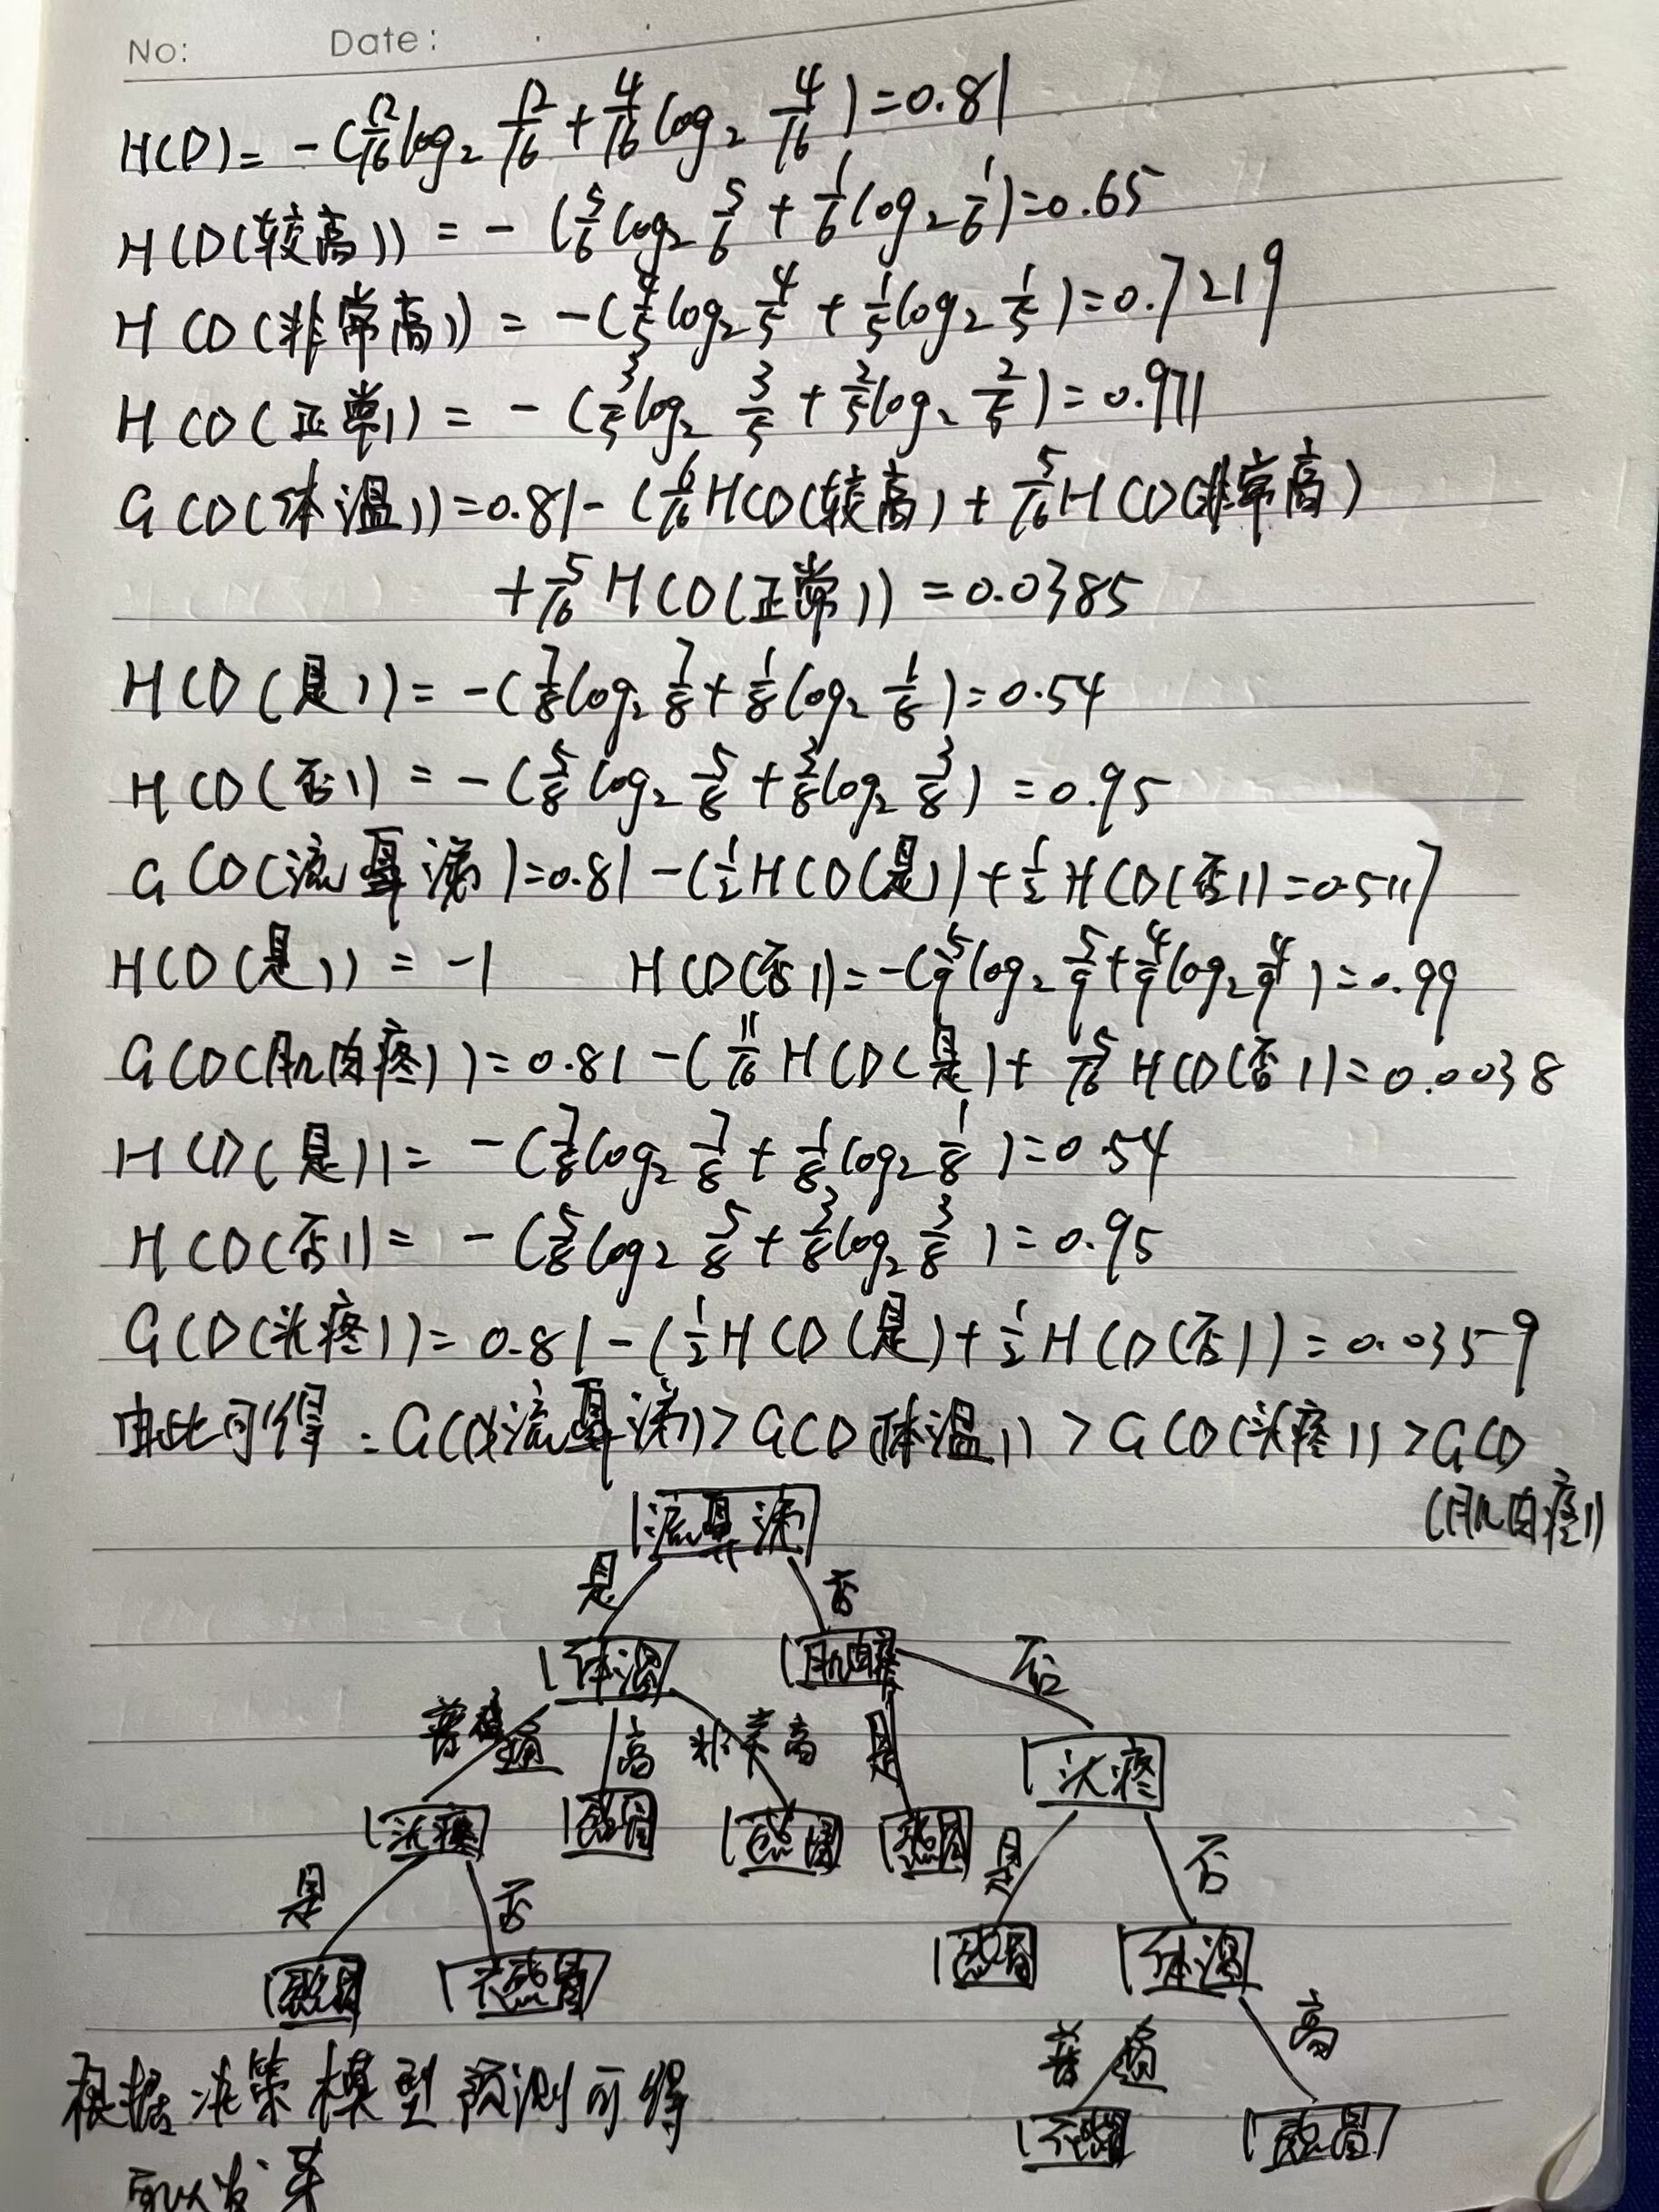 No: Date:
H(D)= -(12/16 log₂ 12/16 + 4/16 log₂ 4/16)=0.81
H(D(较高)) = -(5/6 log₂ 5/6 + 1/6 log₂ 1/6)=0.65
H(D(非常高)) = -(4/5 log₂ 4/5 + 1/5 log₂ 1/5)=0.7219
H(D(正常)) = -(3/5 log₂ 3/5 + 2/5 log₂ 2/5)=0.971
G(D(体温))=0.81-(6/16 H(D(较高)+5/16 H(D(非常高)
+5/16 H(D(正常))=0.0385
H(D(是))=-(7/8 log₂ 7/8+1/8 log₂ 1/8)=0.54
H(D(否))=-(5/8 log₂ 5/8+3/8 log₂ 3/8)=0.95
G(D(流鼻涕)=0.81-(1/2 H(D(是))+1/2 H(D(否))=0.5117
H(D(是))=-1 H(D(否))=-(5/9 log₂ 5/9+4/9 log₂ 4/9)=0.99
G(D(肌肉疼))=0.81-(11/16 H(D(是)+5/16 H(D(否))=0.0038
H(D(是))=-(7/8 log₂ 7/8+1/8 log₂ 1/8)=0.54
H(D(否))=-(5/8 log₂ 5/8+3/8 log₂ 3/8)=0.95
G(D(头疼))=0.81-(1/2 H(D(是)+1/2 H(D(否))=0.0359
由此可得:G(D(流鼻涕)>G(D(体温))>G(D(头疼))>G(D
(肌肉疼))
流鼻涕
是 否
体温 肌肉疼 否
普通 高 非常高 是 头疼
头疼 感冒 感冒 感冒 是 否
是 否
感冒 体温
感冒 不感冒
普通 高
根据决策模型预测可得
感冒